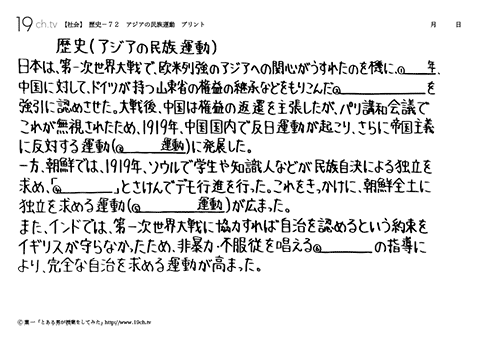 19ch.tv 【社会】 歴史－７２ アジアの民族運動 プリント 月 日
歴史(アジアの民族運動)
日本は、第一次世界大戦で、欧米列強のアジアへの関心がうすれたのを機に、@ 年、
中国に対して、ドイツが持つ山東省の権益の継承などをもりこんだ@ を
強引に認めさせた。大戦後、中国は権益の返還を主張したが、パリ講和会議で
これが無視されたため、1919年、中国国内で反日運動が起こり、さらに帝国主義
に反対する運動(@ 運動)に発展した。
一方、朝鮮では、1919年、ソウルで学生や知識人などが民族自決による独立を
求め、「@ 」とさけんでデモ行進を行った。これをきっかけに、朝鮮全土に
独立を求める運動(@ 運動)が広まった。
また、インドでは、第一次世界大戦に協力すれば自治を認めるという約束を
イギリスが守らなかったため、非暴力・不服従を唱える@ の指導に
より、完全な自治を求める運動が高まった。
© 葉一「とある男が授業をしてみた」http://www.19ch.tv